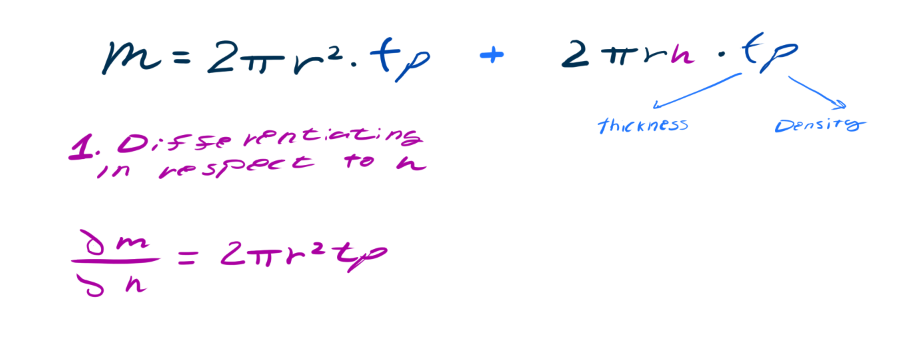 m = 2πr² · tρ + 2πrh · tρ
thickness Density
1. Differentiating
in respect to h
∂m
/∂h = 2πr²tρ